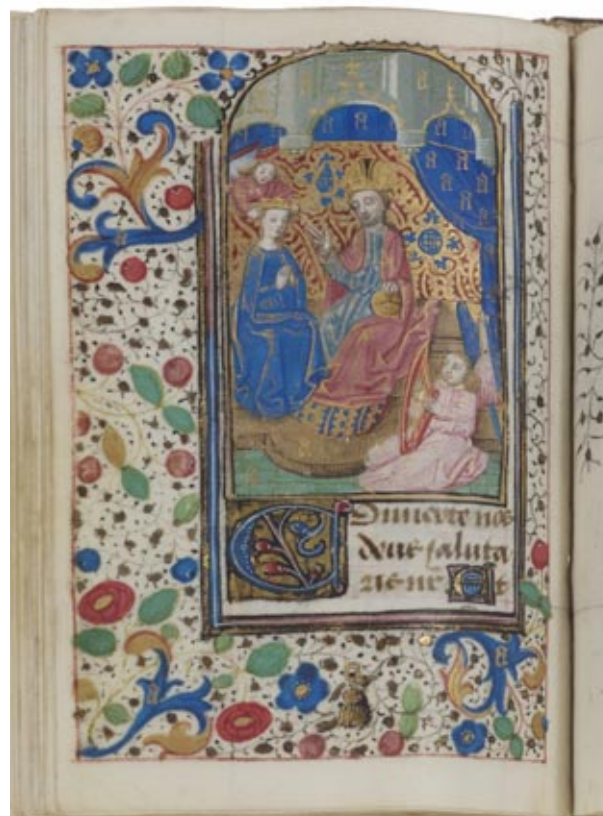 Conuerte nos
deus saluta
ris nr Et